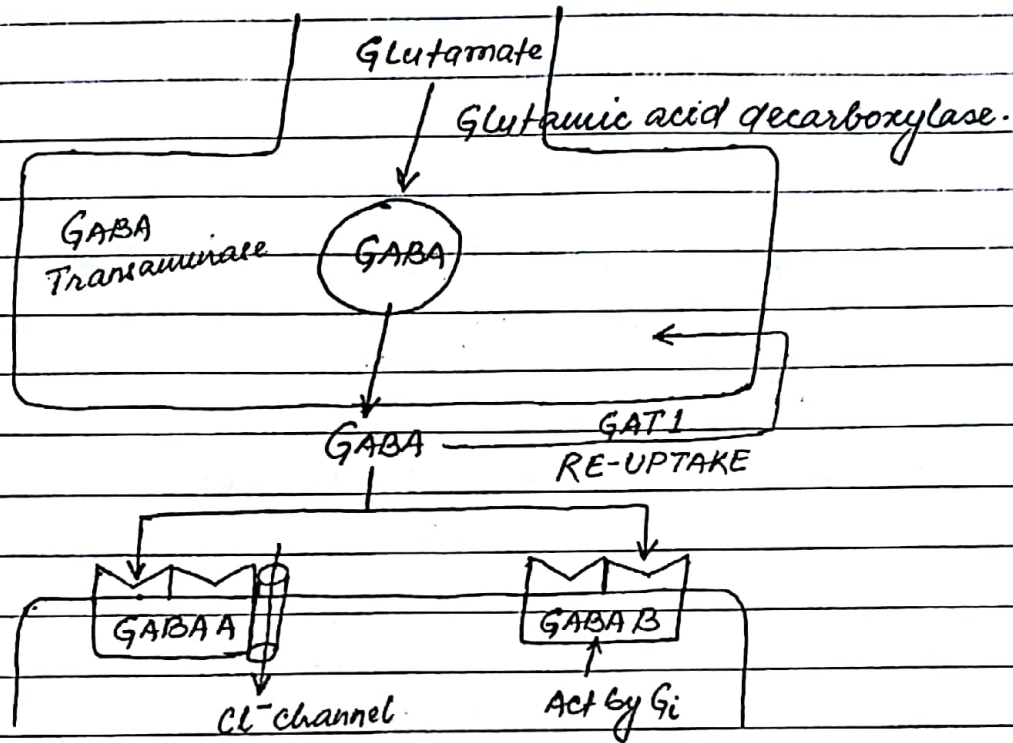 Glutamate
Glutamic acid decarboxylase.
GABA
Transaminase
GABA
GABA
GAT1
RE-UPTAKE
GABA A
GABA B
Cl⁻ channel
Act by Gi